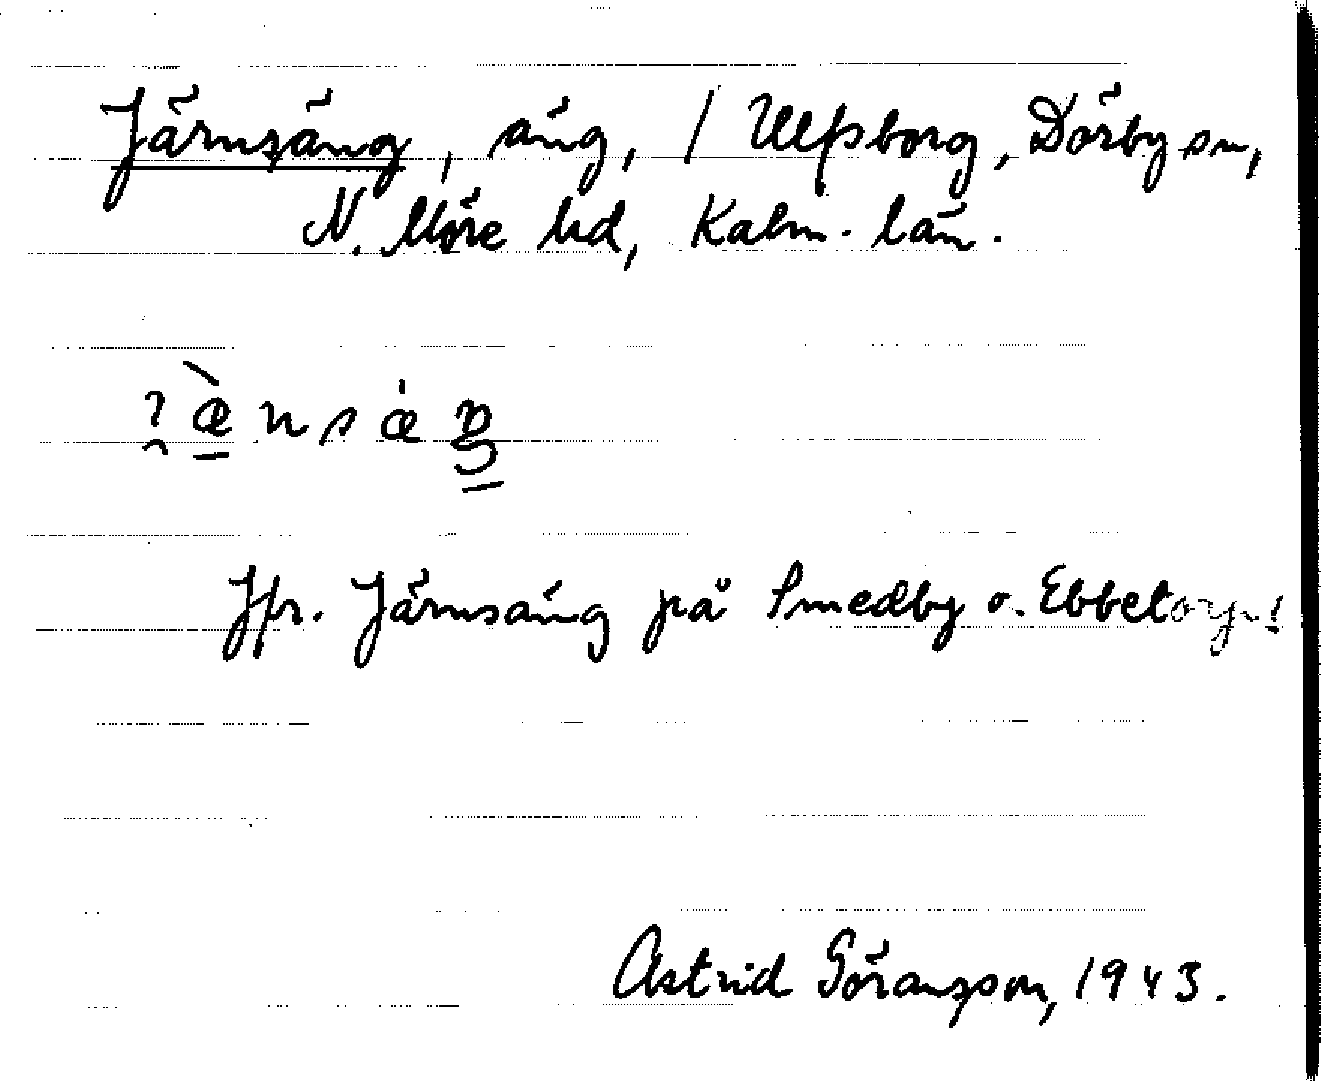 Järnsäng, äng, / Ulfsborg, Dörby sn,
N. Möre hd, Kalm. län.
Jfr. Järnsäng på Smedby o. Ebbetorp!
Astrid Göransson, 1943.